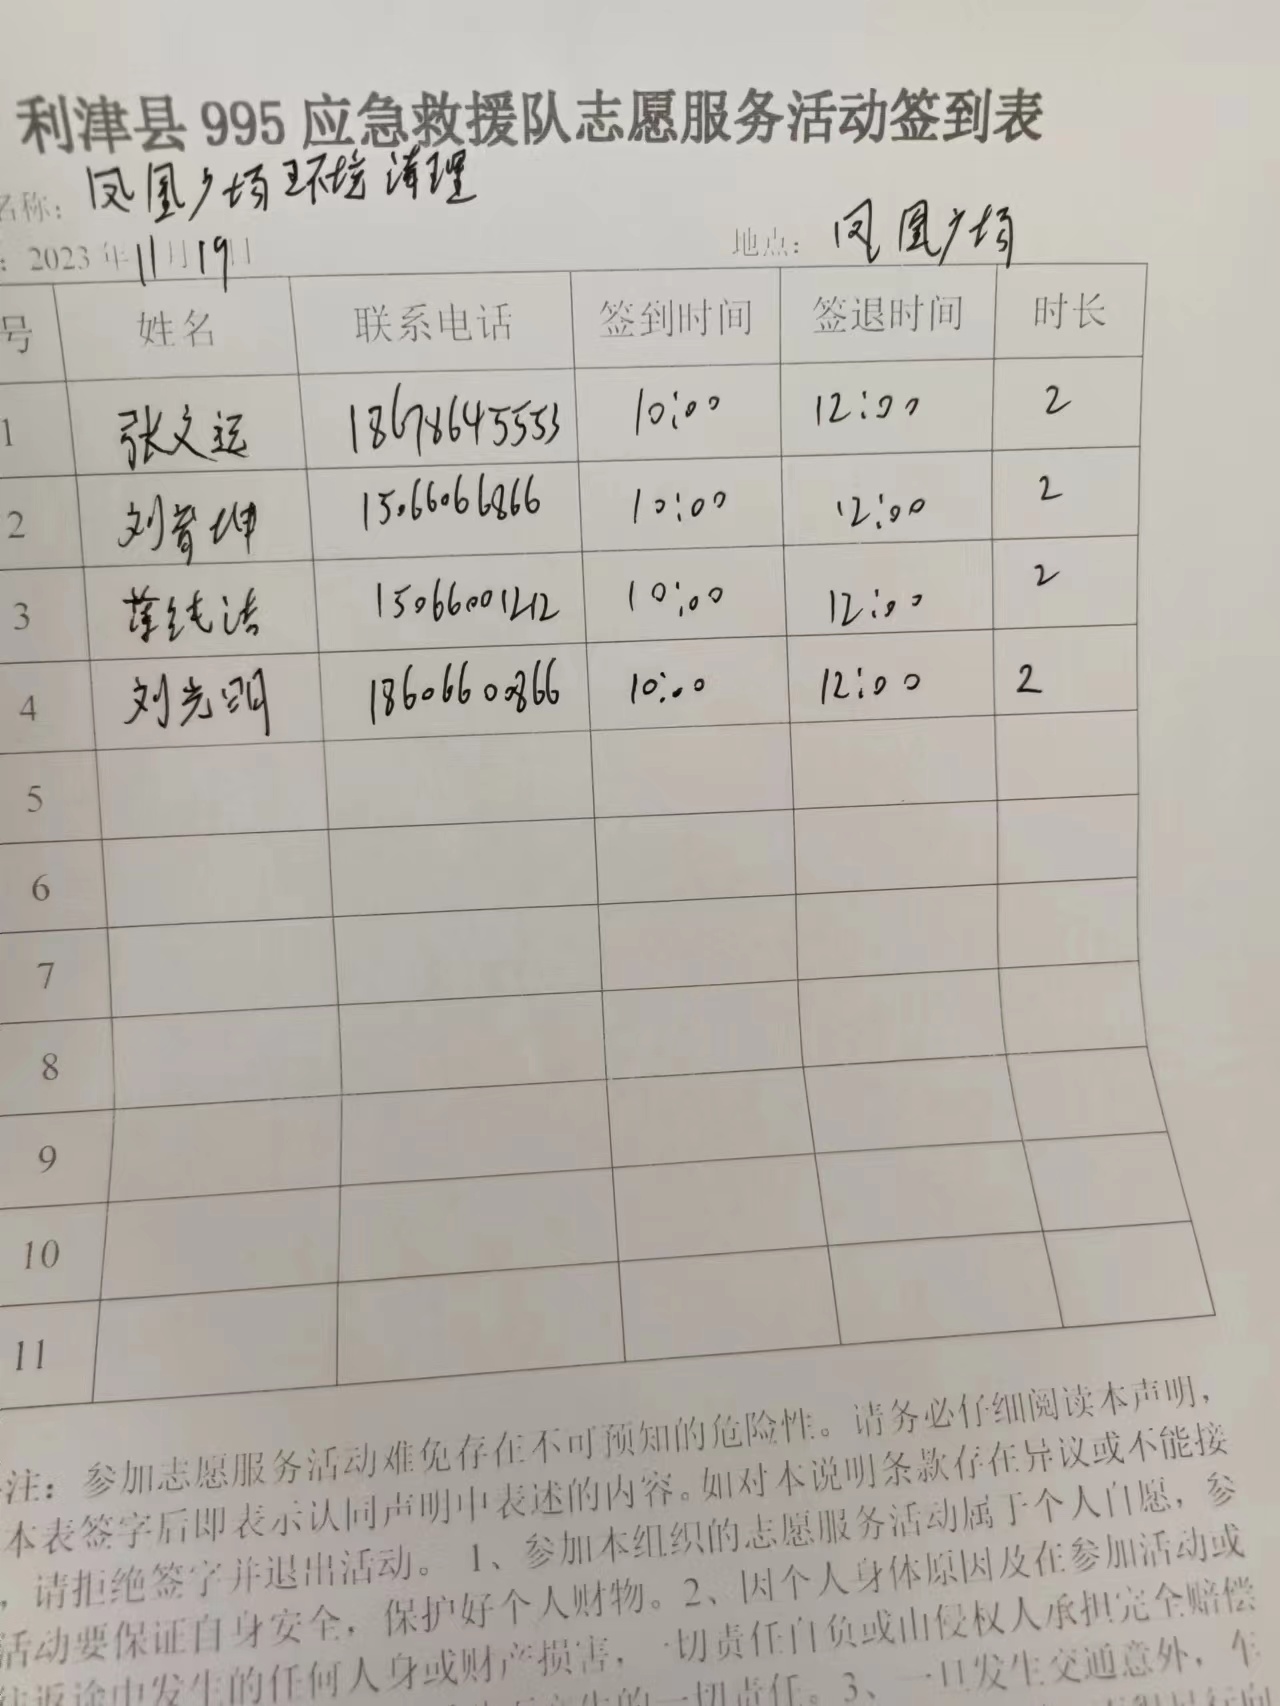 利津县 995 应急救援队志愿服务活动签到表
名称: 凤凰广场环境清理
: 2023 年 11 月 19 日 地点: 凤凰广场
号 姓名 联系电话 签到时间 签退时间 时长
1 张文运 18678645553 10:00 12:00 2
2 刘 坤 15066066866 10:00 12:00 2
3 15066001212 10:00 12:00 2
4 刘光明 18606600866 10:00 12:00 2
5
6
7
8
9
10
11
注: 参加志愿服务活动难免存在不可预知的危险性。请务必仔细阅读本声明,
本表签字后即表示认同声明中表述的内容。如对本说明条款存在异议或不能接
, 请拒绝签字并退出活动。 1、参加本组织的志愿服务活动属于个人自愿, 参
活动要保证自身安全, 保护好个人财物。2、因个人身体原因及在参加活动或
往返途中发生的任何人身或财产损害, 一切责任自负或由侵权人承担完全赔偿
的一切责任。3、一旦发生交通意外,